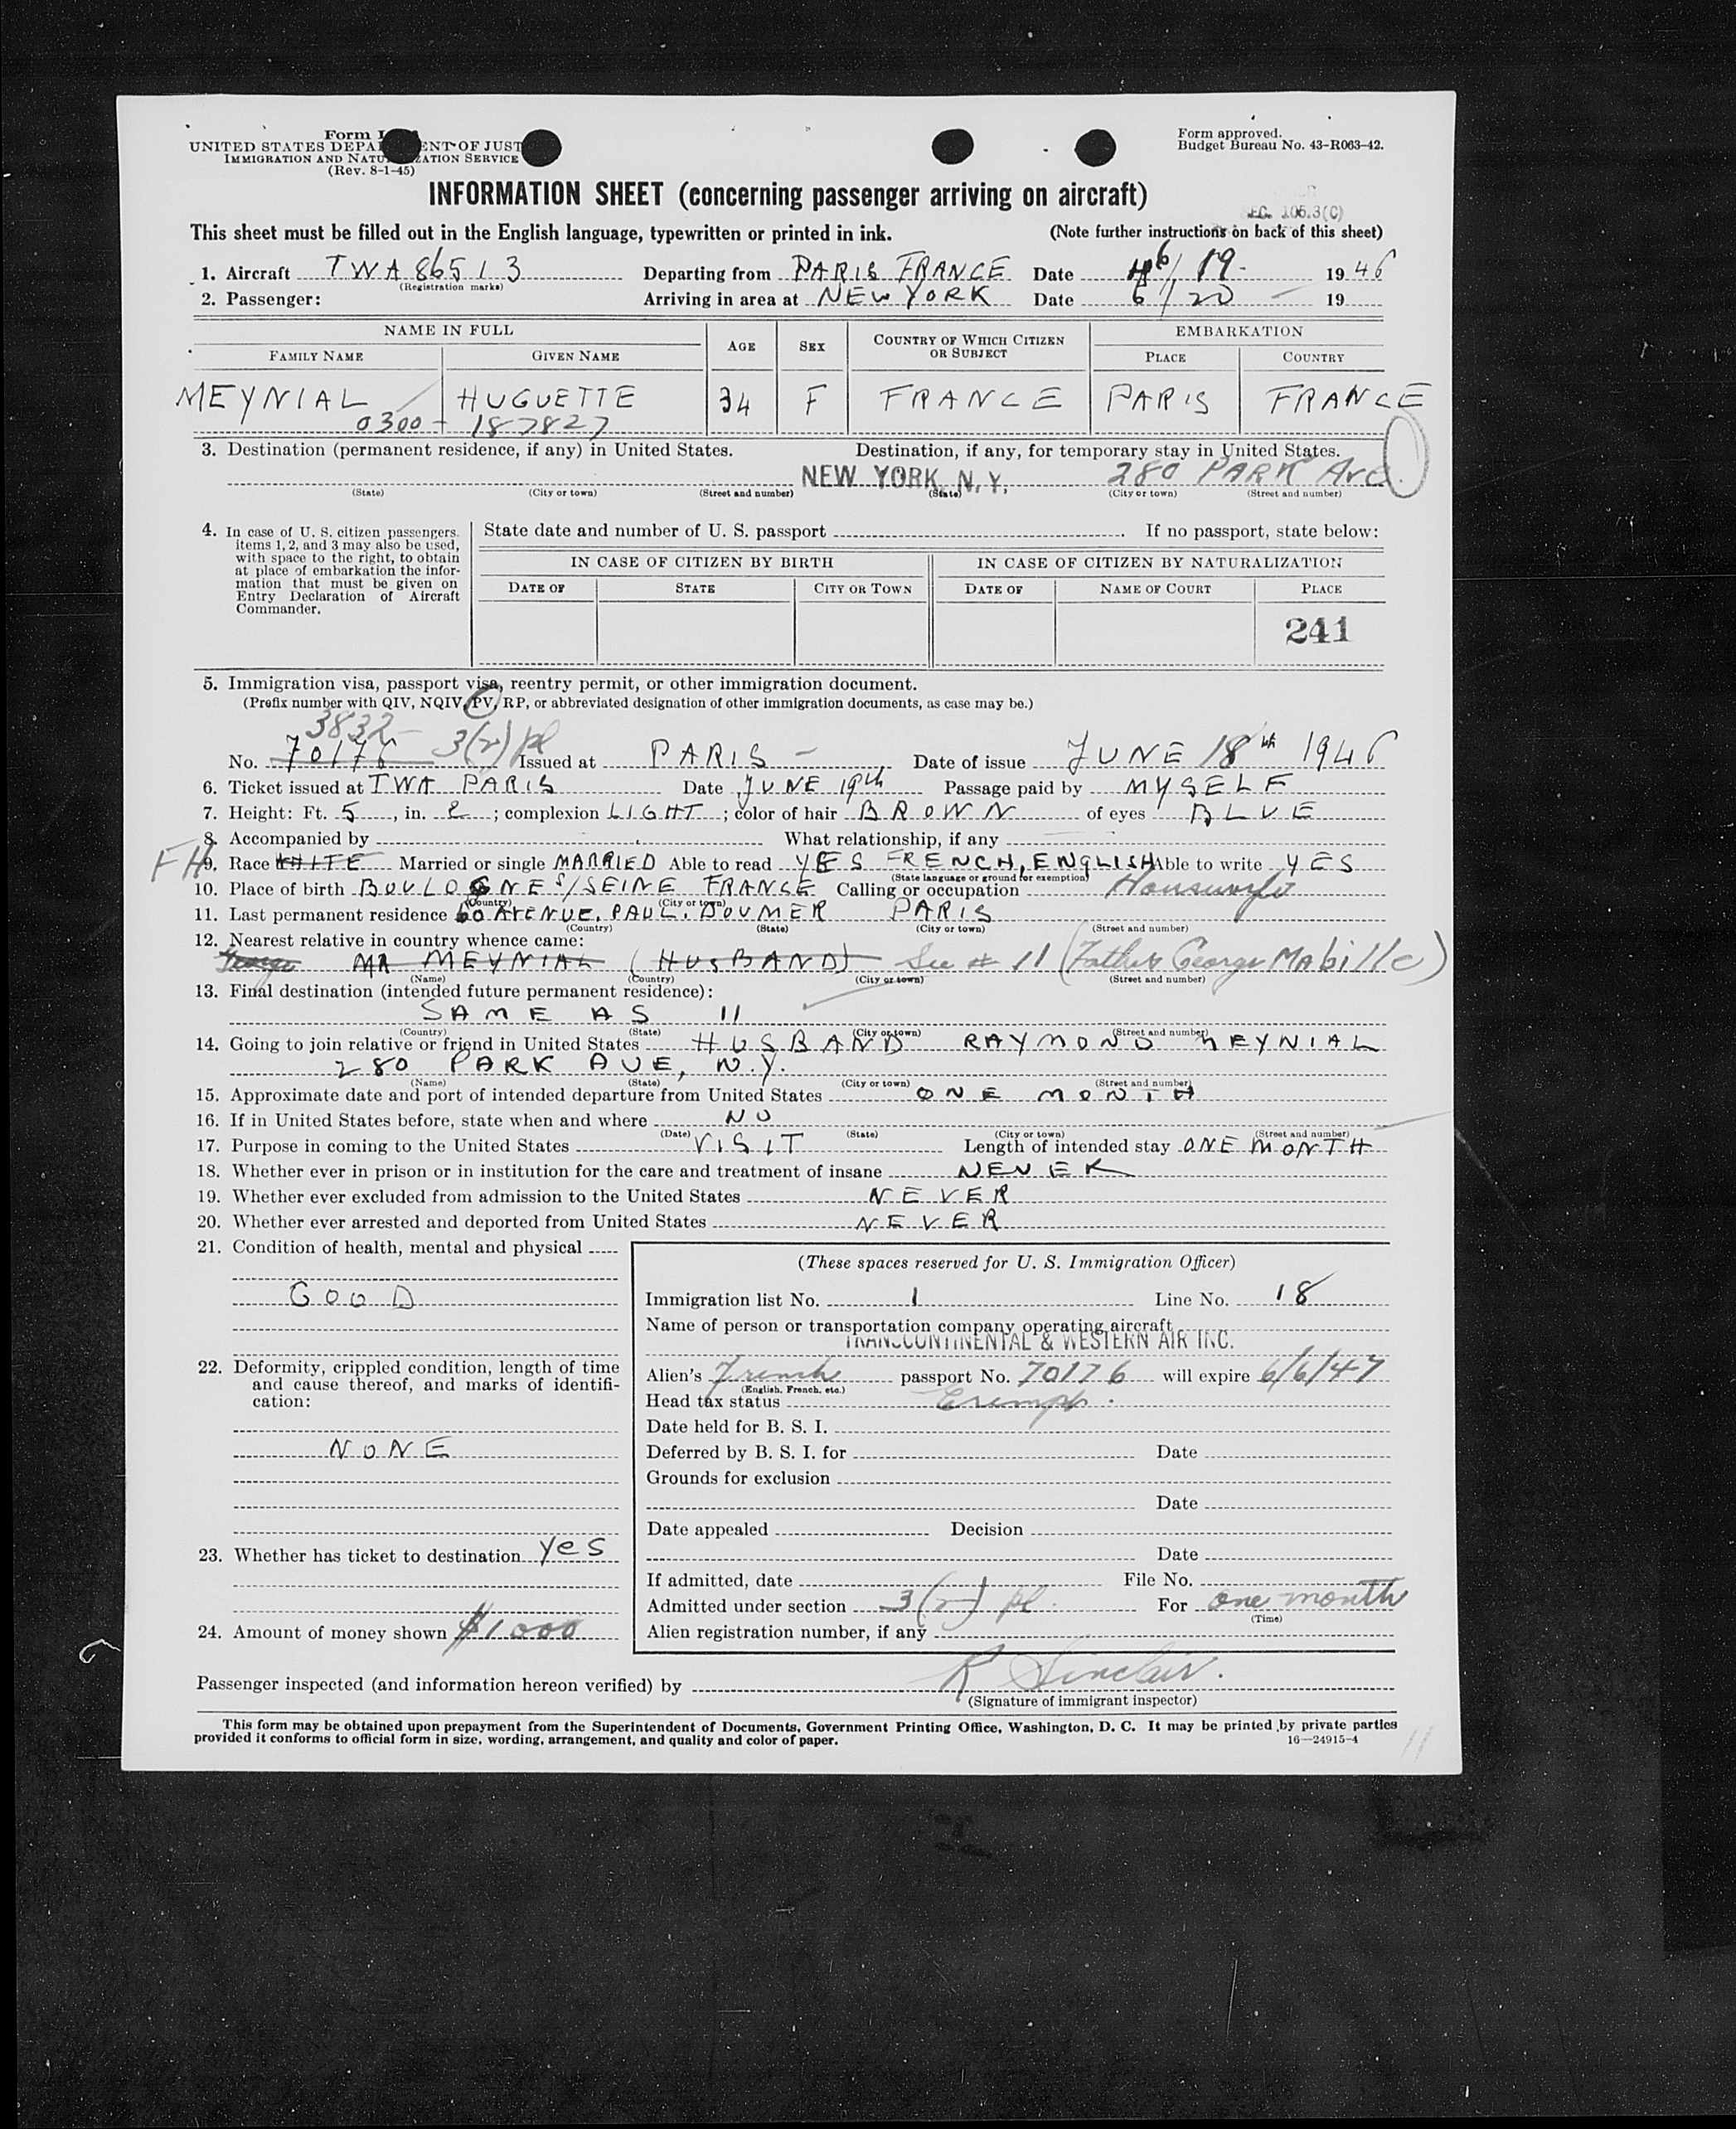 Form
UNITED STATES DEPA ENT OF JUST
IMMIGRATION AND NATU ZATION SERVICE
(Rev. 8-1-45)
Form approved.
Budget Bureau No. 43-R063-42.
INFORMATION SHEET (concerning passenger arriving on aircraft)
105.3(C)
This sheet must be filled out in the English language, typewritten or printed in ink. (Note further instructions on back of this sheet)
1. Aircraft TWA 86513 Departing from PARIS FRANCE Date 6/19 1946
(Registration marks)
2. Passenger: Arriving in area at NEW YORK Date 6/20 19
NAME IN FULL AGE SEX COUNTRY OF WHICH CITIZEN OR SUBJECT EMBARKATION
FAMILY NAME GIVEN NAME PLACE COUNTRY
MEYNIAL HUGUETTE 34 F FRANCE PARIS FRANCE
0300-187827
3. Destination (permanent residence, if any) in United States. Destination, if any, for temporary stay in United States.
NEW YORK, N.Y. 280 PARK Ave.
(State) (City or town) (Street and number) (State) (City or town) (Street and number)
4. In case of U. S. citizen passengers, items 1, 2, and 3 may also be used, with space to the right, to obtain at place of embarkation the information that must be given on Entry Declaration of Aircraft Commander.
State date and number of U. S. passport If no passport, state below:
IN CASE OF CITIZEN BY BIRTH IN CASE OF CITIZEN BY NATURALIZATION
DATE OF STATE CITY OR TOWN DATE OF NAME OF COURT PLACE
241
5. Immigration visa, passport visa, reentry permit, or other immigration document.
(Prefix number with QIV, NQIV, PV, RP, or abbreviated designation of other immigration documents, as case may be.)
3832- 3(2) pl
No. 70176 Issued at PARIS - Date of issue JUNE 18th 1946
6. Ticket issued at TWA PARIS Date JUNE 19th Passage paid by MYSELF
7. Height: Ft. 5, in. 2; complexion LIGHT; color of hair BROWN of eyes BLUE
8. Accompanied by What relationship, if any
FH
9. Race WHITE Married or single MARRIED Able to read YES FRENCH, ENGLISH Able to write YES
(State language or ground for exemption)
10. Place of birth BOULOGNE S/SEINE FRANCE Calling or occupation Housewife
(Country) (City or town)
11. Last permanent residence 60 AVENUE, PAUL. DOUMER PARIS
(Country) (State) (City or town) (Street and number)
12. Nearest relative in country whence came:
George MR MEYNIAL (HUSBAND) See # 11 (Father George Mabille)
(Name) (Country) (City or town) (Street and number)
13. Final destination (intended future permanent residence):
SAME AS 11
(Country) (State) (City or town) (Street and number)
14. Going to join relative or friend in United States HUSBAND RAYMOND MEYNIAL
280 PARK AUE, N.Y.
(Name) (State) (City or town) (Street and number)
15. Approximate date and port of intended departure from United States ONE MONTH
16. If in United States before, state when and where NO
(Date) (State) (City or town) (Street and number)
17. Purpose in coming to the United States VISIT Length of intended stay ONE MONTH
18. Whether ever in prison or in institution for the care and treatment of insane NEVER
19. Whether ever excluded from admission to the United States NEVER
20. Whether ever arrested and deported from United States NEVER
21. Condition of health, mental and physical
GOOD
22. Deformity, crippled condition, length of time and cause thereof, and marks of identification:
NONE
23. Whether has ticket to destination Yes
24. Amount of money shown $1000
(These spaces reserved for U. S. Immigration Officer)
Immigration list No. 1 Line No. 18
Name of person or transportation company operating aircraft
TRANSCONTINENTAL & WESTERN AIR INC.
Alien's French passport No. 70176 will expire 6/6/47
(English, French, etc.)
Head tax status Exempt.
Date held for B. S. I.
Deferred by B. S. I. for Date
Grounds for exclusion
Date
Date appealed Decision
Date
If admitted, date File No.
Admitted under section 3(2) pl. For one month
(Time)
Alien registration number, if any
Passenger inspected (and information hereon verified) by R Sinclair.
(Signature of immigrant inspector)
This form may be obtained upon prepayment from the Superintendent of Documents, Government Printing Office, Washington, D. C. It may be printed by private parties
provided it conforms to official form in size, wording, arrangement, and quality and color of paper. 16—24915-4
11